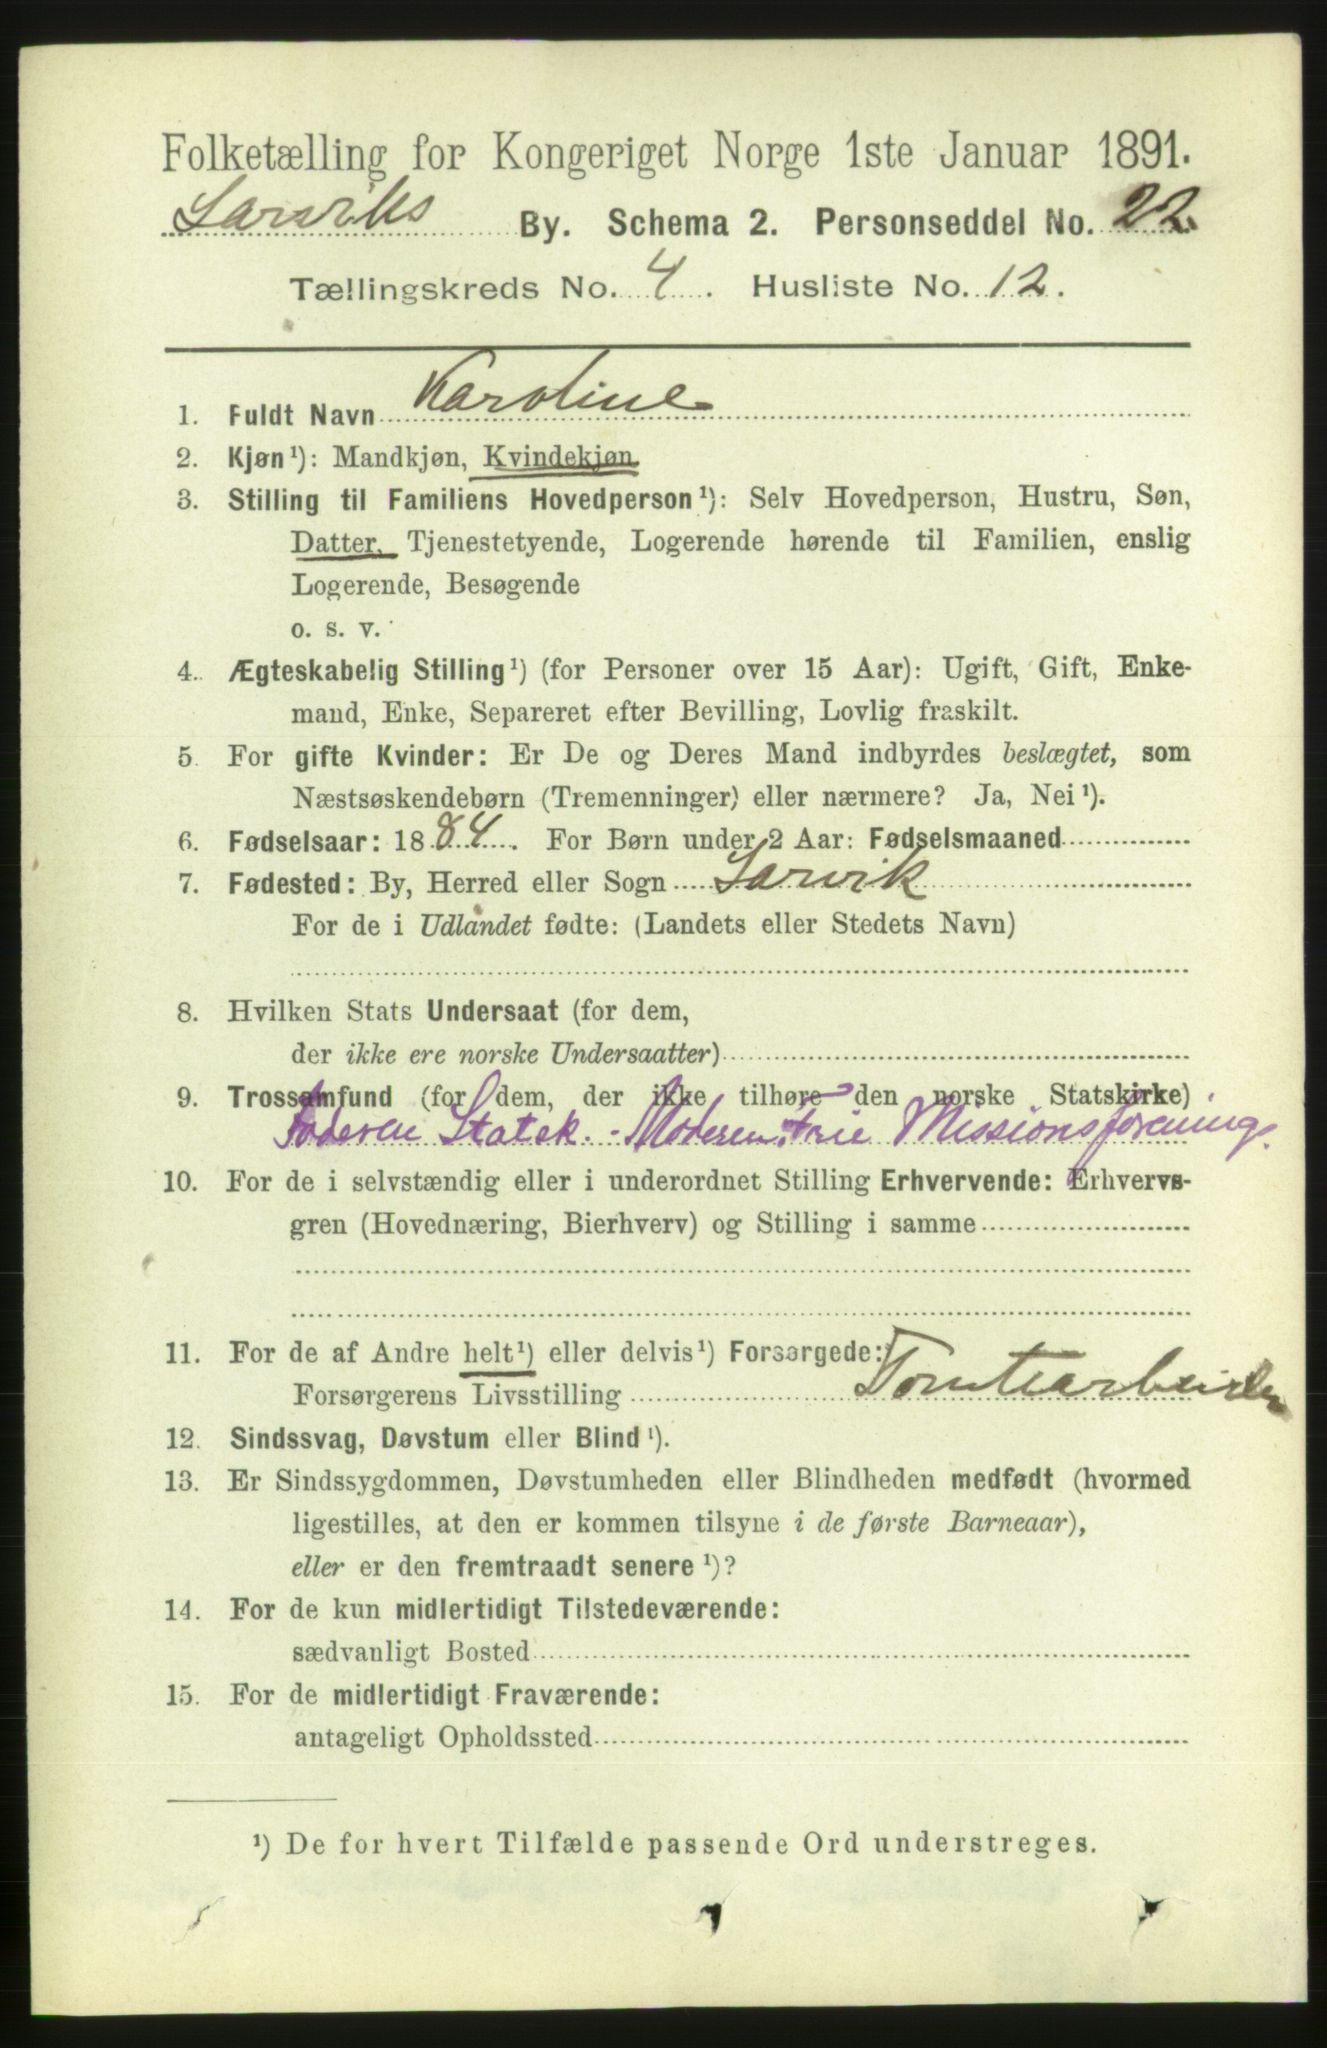 Folketælling for Kongeriget Norge 1ste Januar 1891.
Larviks By. Schema 2. Personseddel No. 22.
Tællingskreds No. 4. Husliste No. 12.
1. Fuldt Navn Karoline
2. Kjøn¹): Mandkjøn, Kvindekjøn
3. Stilling til Familiens Hovedperson¹): Selv Hovedperson, Hustru, Søn,
Datter, Tjenestetyende, Logerende hørende til Familien, enslig
Logerende, Besøgende
o. s. v.
4. Ægteskabelig Stilling¹) (for Personer over 15 Aar): Ugift, Gift, Enke-
mand, Enke, Separeret efter Bevilling, Lovlig fraskilt.
5. For gifte Kvinder: Er De og Deres Mand indbyrdes beslægtet, som
Næstsøskendebørn (Tremenninger) eller nærmere? Ja, Nei¹).
6. Fødselsaar: 1884. For Børn under 2 Aar: Fødselsmaaned
7. Fødested: By, Herred eller Sogn Larvik
For de i Udlandet fødte: (Landets eller Stedets Navn)
8. Hvilken Stats Undersaat (for dem,
der ikke ere norske Undersaatter)
9. Trossamfund (for dem, der ikke tilhøre den norske Statskirke)
Faderen Statsk. - Moderen: Frie Missionsforening.
10. For de i selvstændig eller i underordnet Stilling Erhvervende: Erhvervs-
gren (Hovednæring, Bierhverv) og Stilling i samme
11. For de af Andre helt¹) eller delvis¹) Forsørgede:
Forsørgerens Livsstilling Tomtearbeider
12. Sindssvag, Døvstum eller Blind¹).
13. Er Sindssygdommen, Døvstumheden eller Blindheden medfødt (hvormed
ligestilles, at den er kommen tilsyne i de første Barneaar),
eller er den fremtraadt senere¹)?
14. For de kun midlertidigt Tilstedeværende:
sædvanligt Bosted
15. For de midlertidigt Fraværende:
antageligt Opholdssted
¹) De for hvert Tilfælde passende Ord understreges.